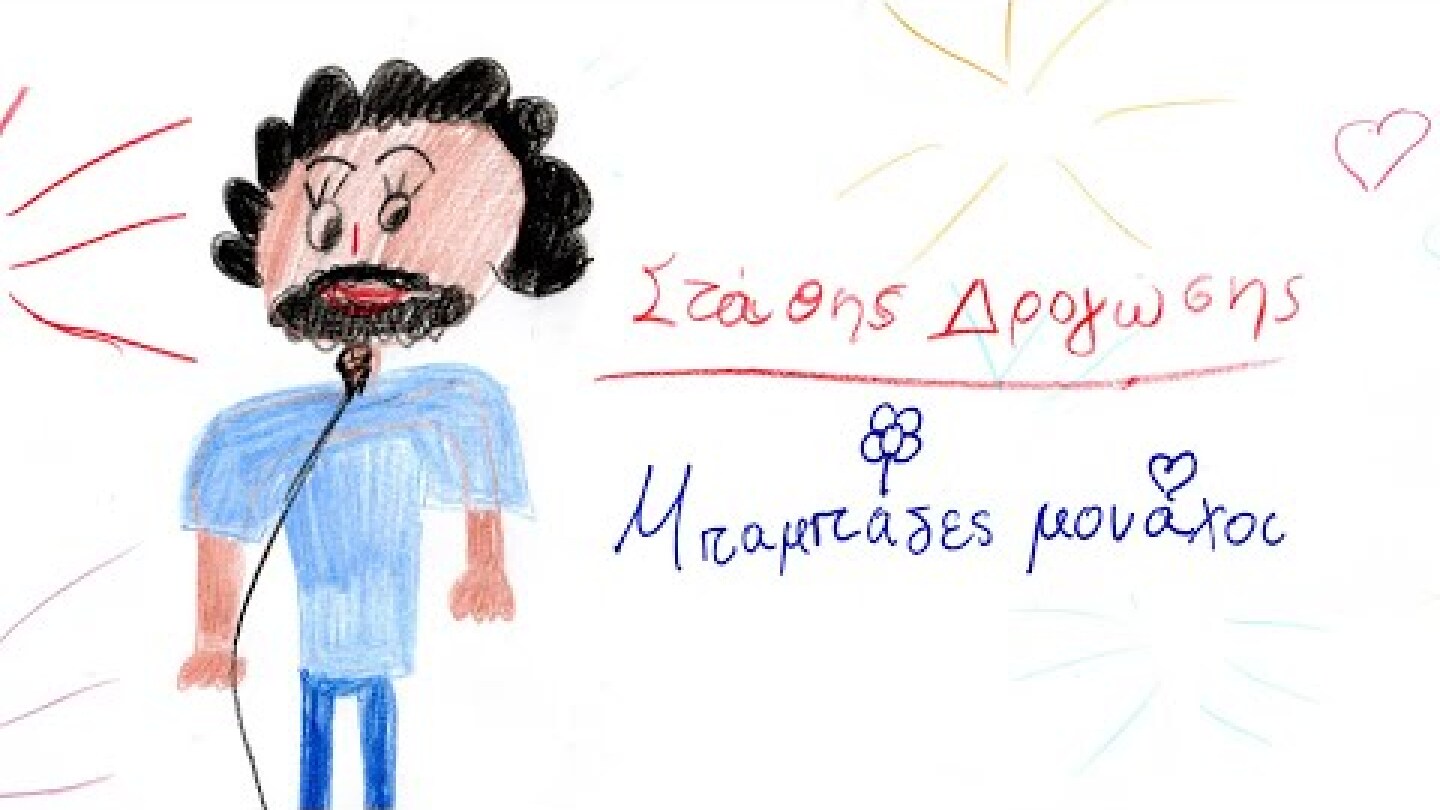 Στάθης Δρογώσης
Μπαμπάδες μονάχοι